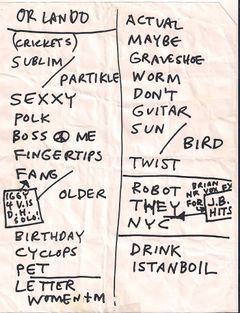 ORLANDO
(CRICKETS)
SUBLIM
PARTIKLE
SEXXY
POLK
BOSS ME
FINGERTIPS
FANG
IGGY
4 V.15
D.H.
SOLO!
OLDER
BIRTHDAY
CYCLOPS
PET
LETTER
WOMEN + M
ACTUAL
MAYBE
GRAVESHOE
WORM
DON'T
GUITAR
SUN
BIRD
TWIST
ROBOT
THEY
NYC
BRIAN
NR VOX BY
FOR J.B.
HITS
DRINK
ISTANBOIL